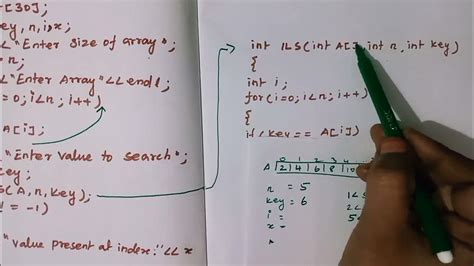 [30];
key, n, i, x;
<<"Enter size of array";
n;
<<"Enter Array"<<endl;
=0; i<n; i++)
A[i];
"Enter value to search";
key;
S(A, n, key);
! = -1)
"value present at index:"<<x
int ILS(int A[], int n, int key)
{
int i;
for(i=0; i<n; i++)
{
if(key== A[i])
0 1 2 3 4
A 2 4 6 8 10
n = 5
key = 6
i =
x =
1<
2<
5<